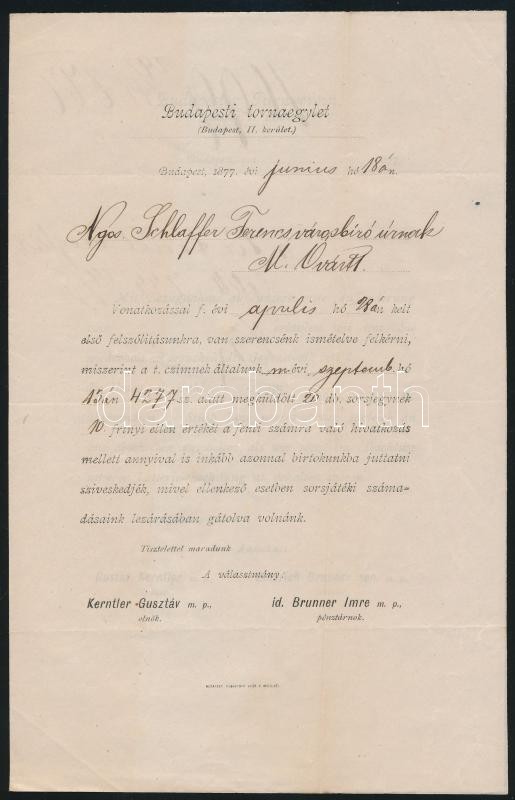 Budapesti tornaegylet
(Budapest, II. kerület.)
Budapest, 1877. évi junius hó 18án.
Ngos. Schlaffer Ferencs városbíró úrnak
M. Ovártt.
Vonatkozással f. évi április hó 28án kelt
első felszólításunkra, van szerencsénk ismételve felkérni,
miszerint a t. czimnek általunk m. évi szeptemb. hó
15án 4277 sz. alatt megküldött 20 db. sorsjegynek
10 frtnyi ellen értékét a fenti számra való hivatkozás
mellett annyival is inkább azonnal birtokunkba juttatni
sziveskedjék, mivel ellenkező esetben sorsjátéki száma-
dásaink lezárásában gátolva volnánk.
Tisztelettel maradunk
A választmány:
Kerntler Gusztáv m. p., id. Brunner Imre m. p.,
elnök. pénztárnok.
darabanth